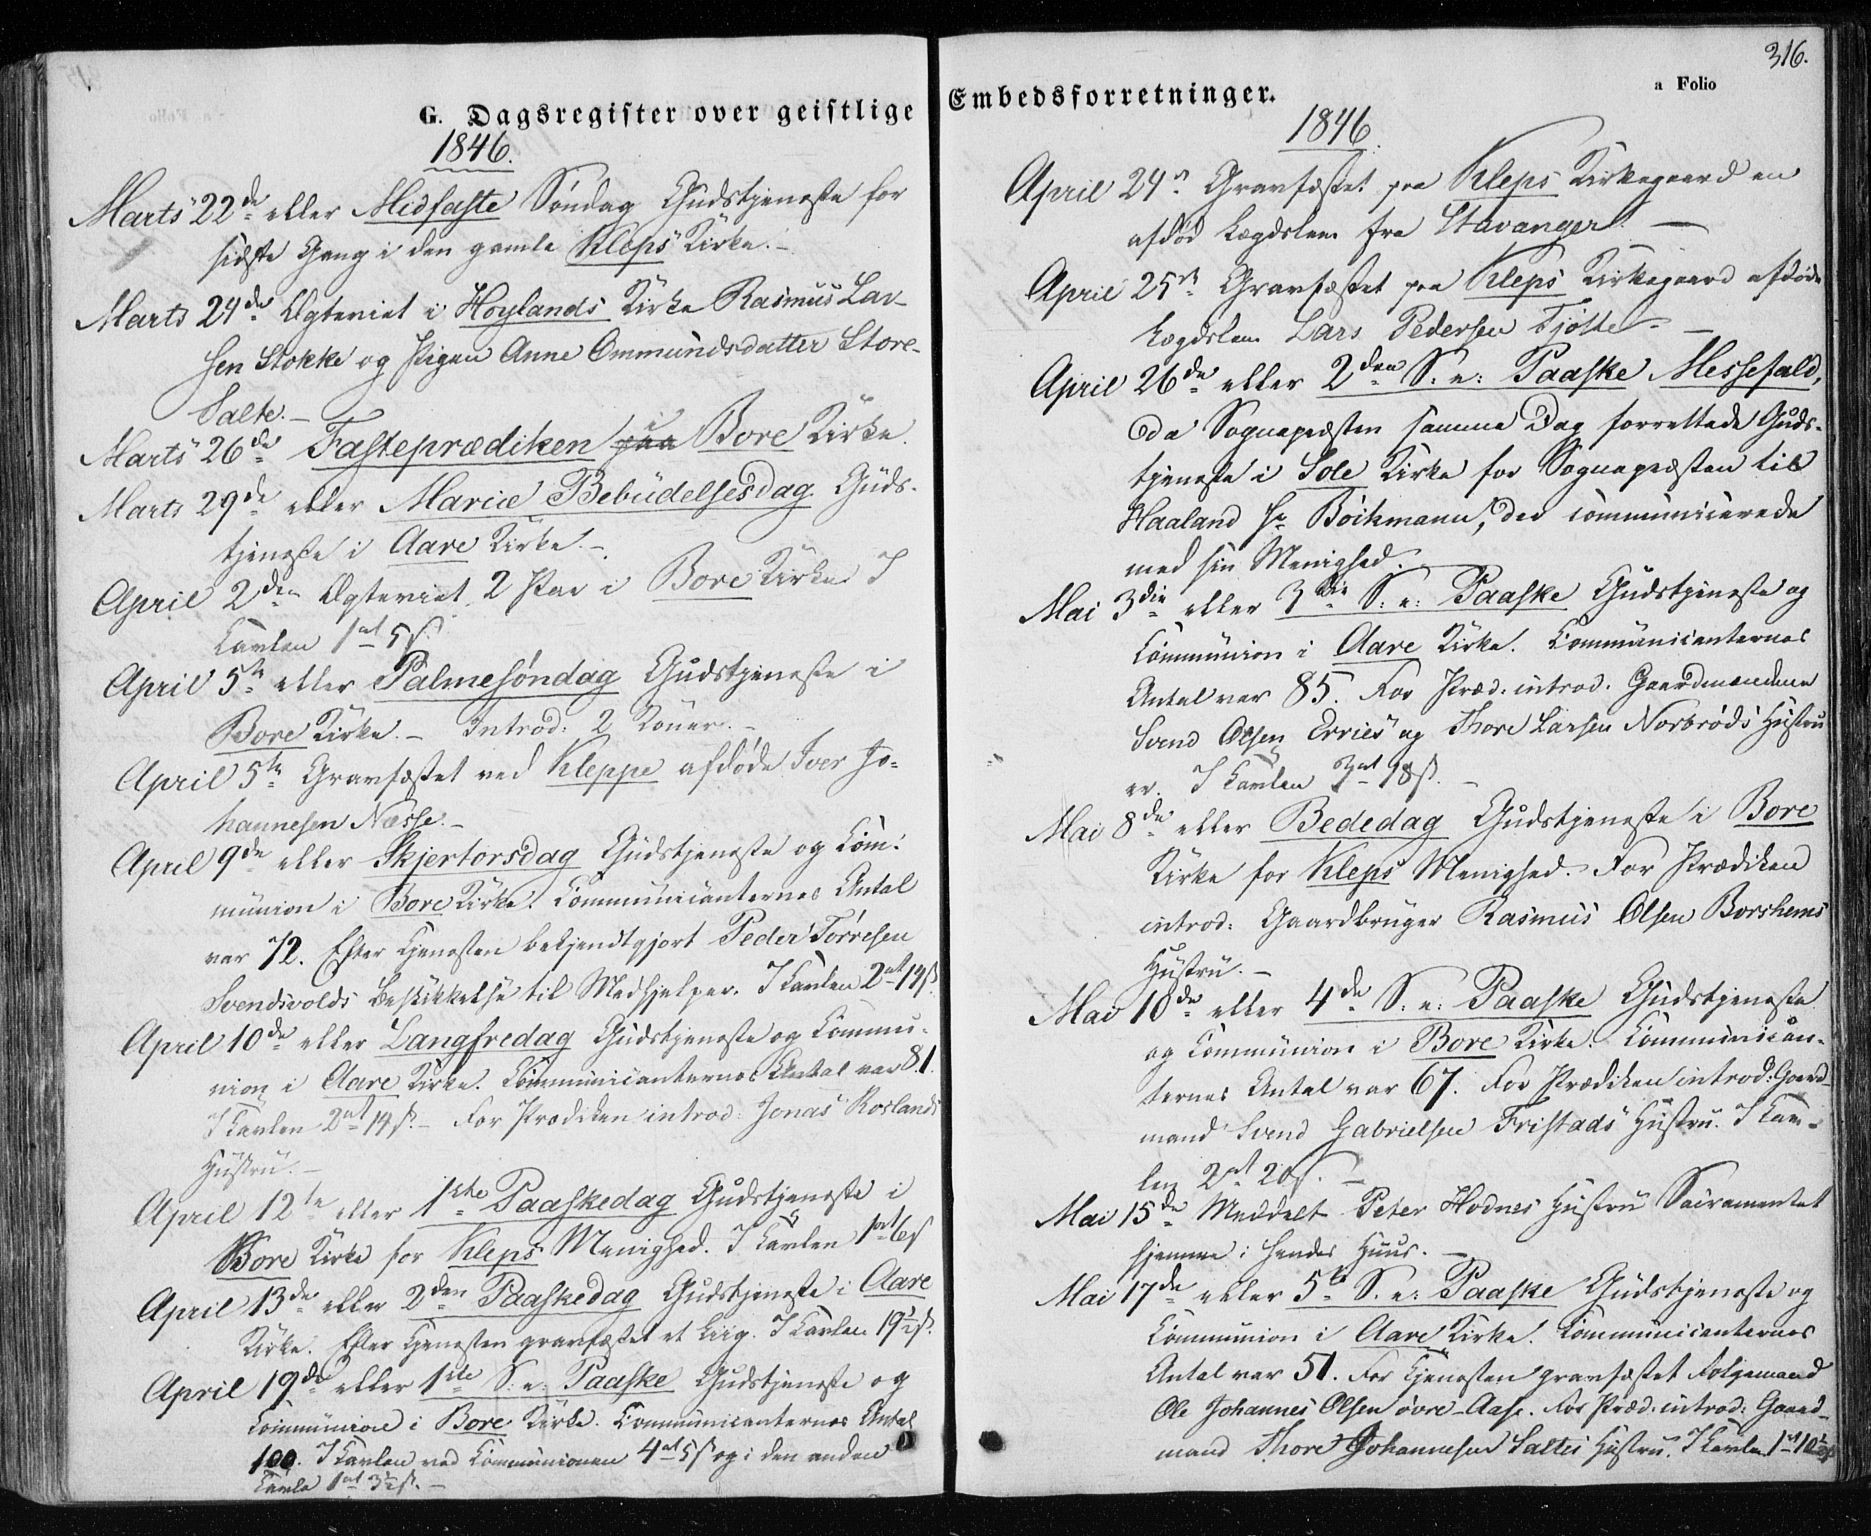 G. Dagsregister over geistlige
1846.
Marts 22de eller Midfaste Søndag Gudstjeneste for
sidste Gang i den gamle Kleps Kirke.
Marts 24de Ægteviet i Høylands Kirke Rasmus Lar-
sen Stokke og Pigen Anne Ommundsdatter Store-
Salte.
Marts 26de Fasteprædiken i Bore Kirke.
Marts 29de eller Mariæ Bebudelsesdag Guds-
tjeneste i Aare Kirke.
April 2den Ægteviet 2 Par i Bore Kirke. I
Tavlen 1 ort 5 s.
April 5te eller Palmesøndag Gudstjeneste i
Bore Kirke. – Introd: 2 Koner. –
April 5te Gravfæstet ved Kleppe afdøde Iver Jo-
hannesen Næsse. –
April 9de eller Skjertorsdag Gudstjeneste og Com-
munion i Bore Kirke. Communicanternes Antal
var 72. Efter Tjenesten bekjendtgjort Peder Tørresen
Svendsvolds Beskikkelse til Medhjelper. I Tavlen 2 ort 14 s.
April 10de eller Langfredag Gudstjeneste og Commu-
nion i Aare Kirke. Communicanternes Antal var 81.
I Tavlen 2 ort 14 s. – For Prædiken introd: Jonas Roslands
Hustru. –
April 12te eller 1ste Paaskedag Gudstjeneste i
Bore Kirke for Kleps Menighed. I Tavlen 1 ort 6 s
April 13de eller 2den Paaskedag Gudstjeneste i Aare
Kirke. Efter Tjenesten gravfæstet et Liig. I Tavlen 19½ s.
April 19de eller 1ste S. e. Paaske Gudstjeneste og
Communion i Bore Kirke. Communicanternes Antal
100. I Tavlen ved Communionen 4 ort 5 s og i den anden
Tavle 1 ort 3½ s. –
316.
Embedsforretninger.
a Folio
1846.
April 24 Gravfæstet paa Kleps Kirkegaard en
afdød Lægdslem fra Stavanger. –
April 25 Gravfæstet paa Kleps Kirkegaard afdøde
Lægdslem Lars Pedersen Tjøtte. –
April 26de eller 2den S. e. Paaske Messefald,
da Sognepræsten samme Dag forrettede Guds-
tjeneste i Sole Kirke for Sognepræsten til
Haaland Hr Böckmann, der communicerede
med sin Menighed.
Mai 3die eller 3die S. e. Paaske Gudstjeneste og
Communion i Aare Kirke. Communicanternes
Antal var 85. For Præd. introd. Gaardmændene
Svend Olsen Ervies og Thore Larsen Norbrøds Hustru
er. I Tavlen 3 ort 18 s. –
Mai 8de eller Bededag Gudstjeneste i Bore
Kirke for Kleps Menighed. For Prædiken
introd: Gaardbruger Rasmus Olsen Borshems
Hustru. –
Mai 10de eller 4de S. e. Paaske Gudstjeneste
og Communion i Bore Kirke. Communican-
ternes Antal var 67. For Prædiken introd: Gaard-
mand Svend Gabrielsen Fristads Hustru. I Tav-
len 2 ort 20 s. –
Mai 15de Meddelt Peter Hodnes Hustru Sacramentet
hjemme i hendes Huus. –
Mai 17de eller 5te S. e. Paaske Gudstjeneste og
Communion i Aare Kirke. Communicanternes
Antal var 51. For Tjenesten gravfæstet Følgemand
Ole Johannes Olsen øvre-Aase. For Præd. introd: Gaard-
mand Thore Johannesen Saltes Hustru. I Tavlen 1 ort 10½ s